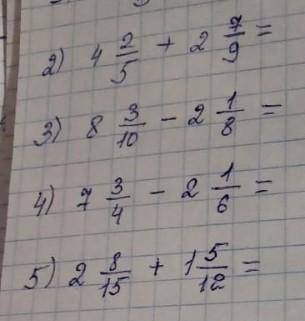 2) 4 2/5 + 2 7/9 =
3) 8 3/10 - 2 1/8 =
4) 7 3/4 - 2 1/6 =
5) 2 8/15 + 1 5/12 =